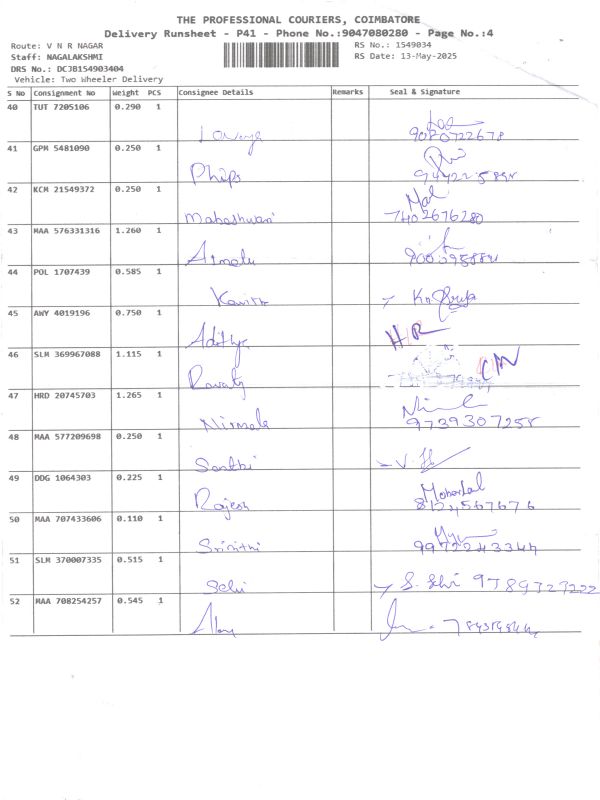 THE PROFESSIONAL COURIERS, COIMBATORE
Delivery Runsheet - P41 - Phone No.:9047080280 - Page No.:4
Route: V N R NAGAR
RS No.: 1549034
Staff: NAGALAKSHMI
RS Date: 13-May-2025
DRS No.: DCJB154903404
Vehicle: Two Wheeler Delivery
S No Consignment No Weight PCS Consignee Details Remarks Seal & Signature
40 TUT 7205106 0.290 1
9080722678
41 GPM 5481090 0.250 1
Philips
42 KCM 21549372 0.250 1
Mal
Mahashwari 7402676280
43 MAA 576331316 1.260 1
44 POL 1707439 0.585 1
Kavitha
45 AWY 4019196 0.750 1
HR
Adithya
46 SLM 369967088 1.115 1
47 HRD 20745703 1.265 1
Nirmala 9739307258
48 MAA 577209698 0.250 1
Santhi
49 DDG 1064303 0.225 1
Rajesh
50 MAA 707433606 0.110 1
Srinithi
51 SLM 370007335 0.515 1
Selvi
52 MAA 708254257 0.545 1